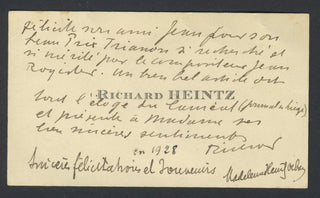 félicite son ami Jean pour son
beau Prix Trianon si recherché et
si mérité par le compositeur Jean
Rogister. Un bien bel article dit
RICHARD HEINTZ
tout l'éloge du Lauréat (journal de Liège)
et présente à Madame ses
bien sincères sentiments
en 1928 Richard
Sincères félicitations et souvenirs
Madeleine Heintz